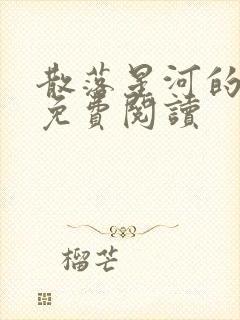 散落星河的
免費閱讀
榴芒